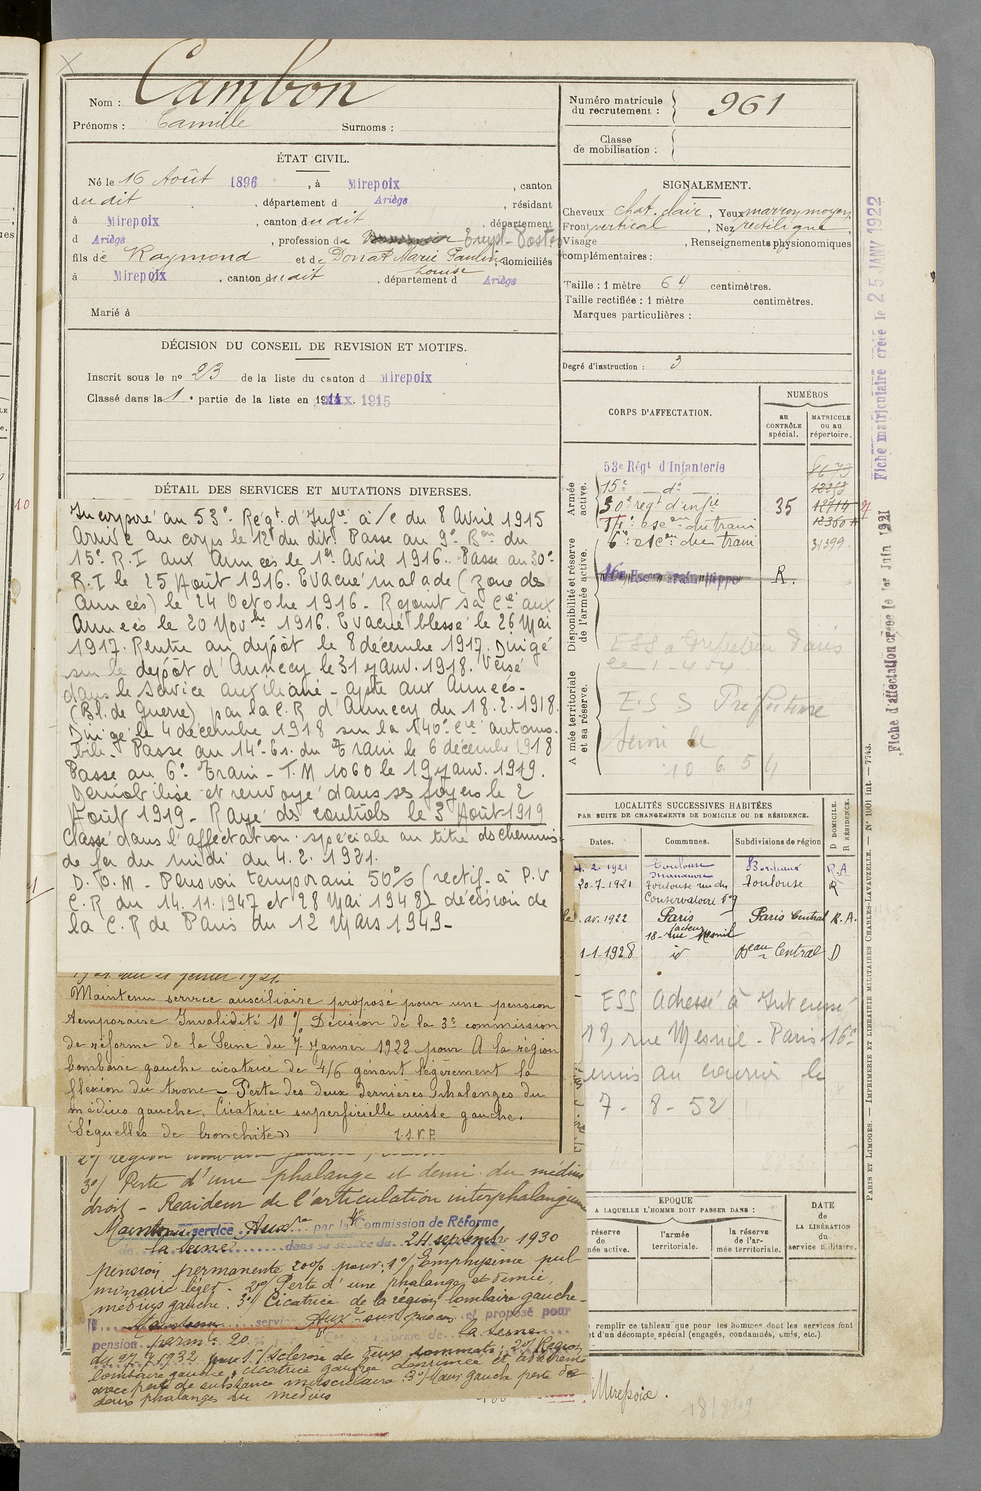 Cambon
Nom :
Prénoms : Camille Surnoms :
Numéro matricule du recrutement : 961
Classe de mobilisation :
ÉTAT CIVIL.
Né le 16 Août 1896, à Mirepoix, canton
dudit, département d Ariège, résidant
à Mirepoix, canton dudit, département
d Ariège, profession de Empl. Postes
fils de Raymond et de Donat Marie Pauline Louise, domiciliés
à Mirepoix, canton dudit, département d Ariège
Marié à
SIGNALEMENT.
Cheveux chat. clair, Yeux marron moyen
Front vertical, Nez rectiligne
Visage , Renseignements physionomiques
complémentaires :
Taille : 1 mètre 64 centimètres.
Taille rectifiée : 1 mètre centimètres.
Marques particulières :
Degré d'instruction : 3
DÉCISION DU CONSEIL DE REVISION ET MOTIFS.
Inscrit sous le nº 23 de la liste du canton d Mirepoix
Classé dans la 1e partie de la liste en 1915
DÉTAIL DES SERVICES ET MUTATIONS DIVERSES.
Incorporé au 53e Régt d'Infie à/c du 8 Avril 1915
Arrivé au corps le 12 du dit. Passe au 9e Bon du
15e R.I aux Armées le 1er Avril 1916. Passe au 30e
R.I le 25 Août 1916. Evacué malade (zone des
Armées) le 24 Octobre 1916. Rejoint sa Cie aux
Armées le 20 Novbre 1916. Evacué blessé le 26 Mai
1917. Rentre au dépôt le 8 décembre 1917. Dirigé
sur le dépôt d'Annecy le 31 janv. 1918. Versé
dans le service auxiliaire - apte aux Armées -
(Bl. de Guerre) par la C.R d'Annecy du 18.2.1918.
Dirigé le 4 décembre 1918 sur la 140e Cie automo-
bile. Passe au 14e Es. du Train le 6 décembre 1918
Passe au 6e Train - T.M 1060 le 19 janv. 1919.
Démobilisé et renvoyé dans ses foyers le 2
Août 1919 - Rayé des contrôles le 3 Août 1919
Classé dans l'affectation spéciale au titre des chemins
de fer du midi du 4.2.1921.
D.O.M - Pension temporaire 50% (rectif. à P.V
C.R du 14.11.1947 et 28 Mai 1948) décision de
la C.R de Paris du 12 Mars 1949 -
Maintenu service auxiliaire proposé pour une pension
temporaire Invalidité 10 % Décision de la 3e commission
de réforme de la Seine du 7 janvier 1922 pour A la région
lombaire gauche cicatrice de 4/6 gênant légèrement la
flexion du tronc - Perte des deux dernières phalanges du
médius gauche. Cicatrice superficielle cuisse gauche.
Séquelles de bronchite»
3º/ Perte d'une phalange et demi du médius
droit - Raideur de l'articulation interphalangienne
Maintenu service Auxre par la Commission de Réforme
de la Seine dans sa séance du 24 septembre 1930
pension permanente 20% pour : 1º/ Emphysème pul
monaire léger. 2º/ Perte d'une phalange et demie,
médius gauche. 3º/ Cicatrice de la région lombaire gauche -
Maintenu service Auxre et proposé pour
pension permte 20 % réforme de la Seine
lombaire gauche, cicatrice gauche
avec perte de substance musculaire 3º/ Main gauche perte de
deux phalanges du médius
CORPS D'AFFECTATION.
NUMÉROS
au CONTRÔLE spécial.
MATRICULE ou au répertoire.
Armée active.
53e Régt d'Infanterie
15e dº
30e régt d'infie 35
14e escon du train
6e escon du train 31399
R.
Disponibilité et réserve de l'armée active.
ESS à Préfecture Paris
le 1-4-54
Armée territoriale et sa réserve.
E.S S Préfecture
Seine le
10 6 54
LOCALITÉS SUCCESSIVES HABITÉES
PAR SUITE DE CHANGEMENTS DE DOMICILE OU DE RÉSIDENCE.
Dates. Communes. Subdivisions de région D DOMICILE. R RÉSIDENCE.
4.2.1921 Toulouse Bordeaux R.A
20.7.1921 Toulouse rue du Conservatoire 1 Toulouse R
av. 1922 Paris 18 rue Mesnil Paris Central R.A.
1-1-1928 id Beau Central D
ESS adressé à Intéressé
18, rue Mesnil - Paris 16e
remis au courrier le
7 - 8 - 52
EPOQUE
A LAQUELLE L'HOMME DOIT PASSER DANS :
réserve de
l'armée territoriale.
la réserve de l'armée territoriale.
DATE de LA LIBÉRATION du service militaire.
remplir ce tableau que pour les hommes dont les services font
d'un décompte spécial (engagés, condamnés, omis, etc.)
Mirepoix.
Fiche matriculaire créée le 25 JANV 1922
Fiche d'affectation créée le 1er Juin 1921
PARIS ET LIMOGES. — IMPRIMERIE ET LIBRAIRIE MILITAIRES CHARLES-LAVAUZELLE. — Nº 1001 int. — 7743.